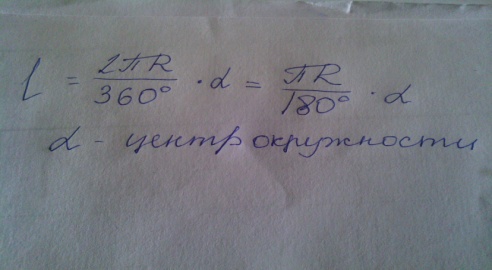 l = 2πR/360° · α = πR/180° · α
α - центр окружности